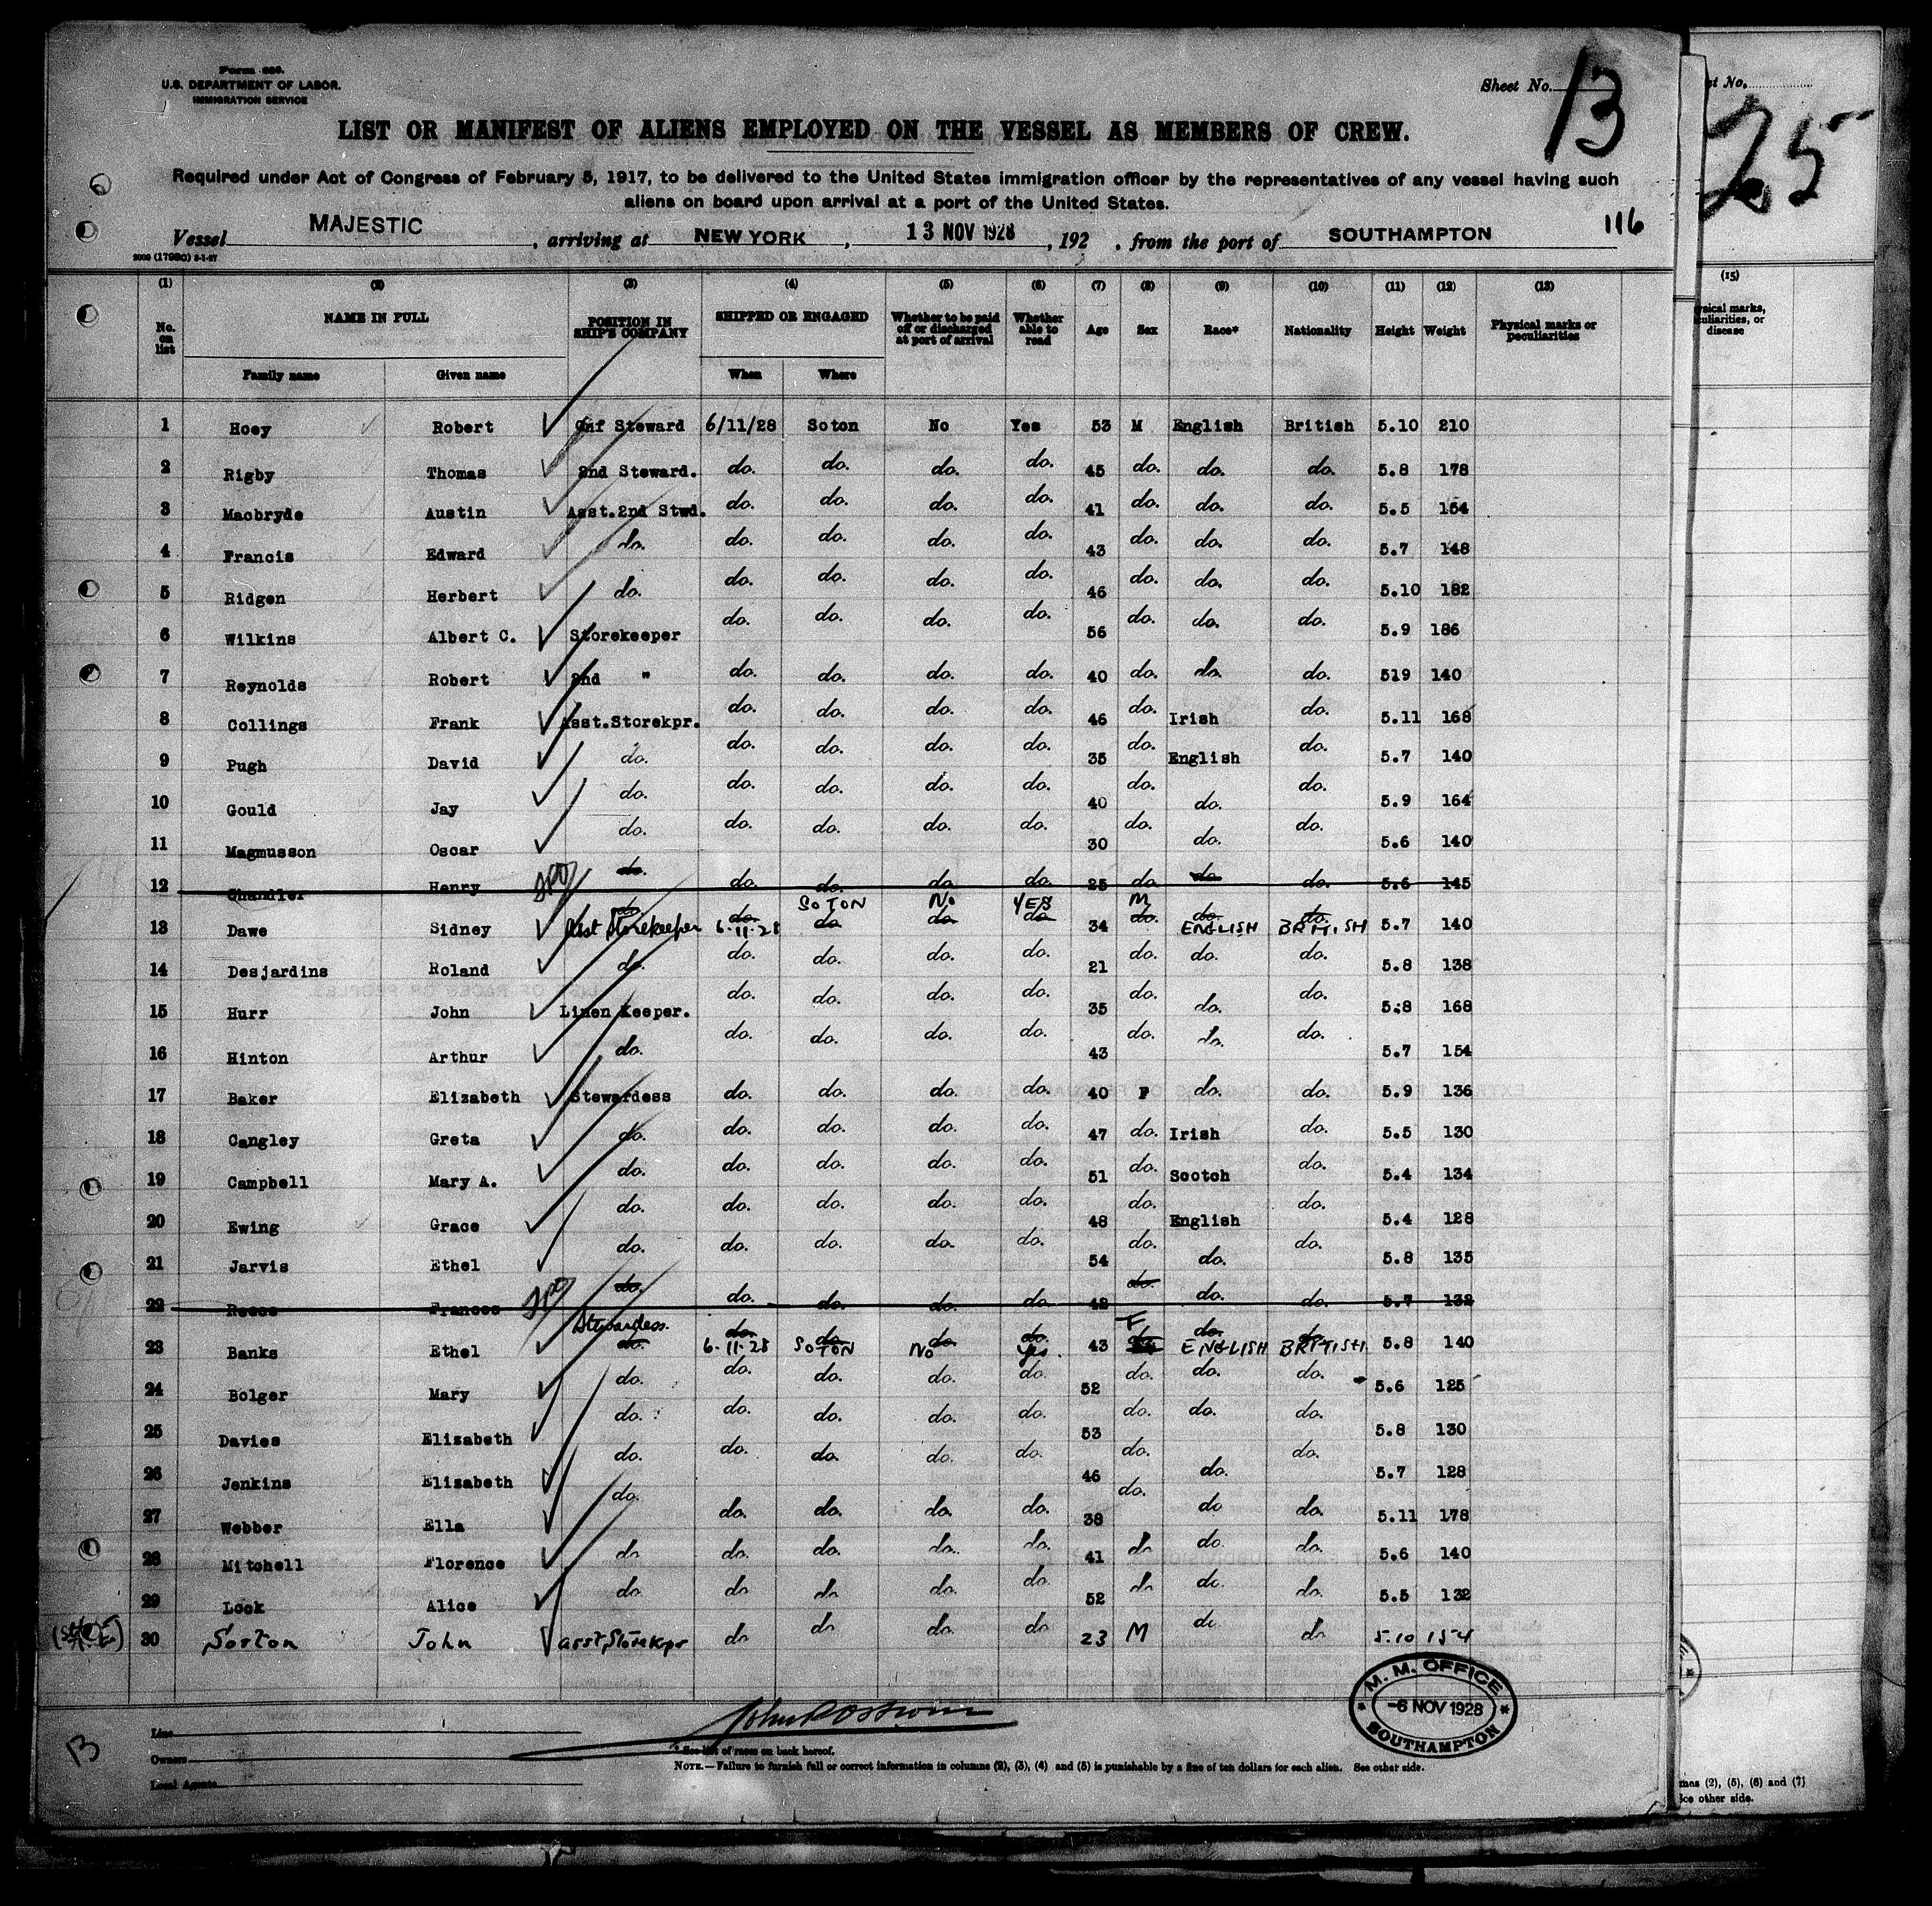 Form 689.
U.S. DEPARTMENT OF LABOR.
IMMIGRATION SERVICE
Sheet No. 13
LIST OR MANIFEST OF ALIENS EMPLOYED ON THE VESSEL AS MEMBERS OF CREW.
Required under Act of Congress of February 5, 1917, to be delivered to the United States immigration officer by the representatives of any vessel having such
aliens on board upon arrival at a port of the United States.
116
Vessel MAJESTIC, arriving at NEW YORK, 13 NOV 1928, 192 , from the port of SOUTHAMPTON
(1) (2) (3) (4) (5) (6) (7) (8) (9) (10) (11) (12) (13)
No. on list NAME IN FULL POSITION IN SHIP'S COMPANY SHIPPED OR ENGAGED Whether to be paid off or discharged at port of arrival Whether able to read Age Sex Race* Nationality Height Weight Physical marks or peculiarities
Family name Given name When Where
1 Hoey Robert Chf Steward 6/11/28 Soton No Yes 53 M English British 5.10 210
2 Rigby Thomas 2nd Steward. do. do. do. do. 45 do. do. do. 5.8 178
3 Macbryde Austin Asst.2nd Stwd. do. do. do. do. 41 do. do. do. 5.5 154
4 Francis Edward do. do. do. do. do. 43 do. do. do. 5.7 148
5 Ridgen Herbert do. do. do. do. do. 46 do. do. do. 5.10 182
6 Wilkins Albert C. Storekeeper do. do. do. do. 56 do. do. do. 5.9 186
7 Reynolds Robert 2nd " do. do. do. do. 40 do. do. do. 519 140
8 Collings Frank Asst.Storekpr. do. do. do. do. 46 do. Irish do. 5.11 168
9 Pugh David do. do. do. do. do. 35 do. English do. 5.7 140
10 Gould Jay do. do. do. do. do. 40 do. do. do. 5.9 164
11 Magmusson Oscar do. do. do. do. do. 30 do. do. do. 5.6 140
12 Chandler Henry do. do. do. do. do. 25 do. do. do. 5.6 145
13 Dawe Sidney do. Asst Storekeeper do. 6.11.28 SOTON do No do YES do 34 M do. do. ENGLISH do. BRITISH 5.7 140
14 Desjardins Roland do. do. do. do. do. 21 do. do. do. 5.8 138
15 Hurr John Linen Keeper. do. do. do. do. 35 do. do. do. 5.8 168
16 Hinton Arthur do. do. do. do. do. 43 do. do. do. 5.7 154
17 Baker Elizabeth Stewardess do. do. do. do. 40 F do. do. 5.9 136
18 Cangley Greta do. do. do. do. do. 47 do. Irish do. 5.5 130
19 Campbell Mary A. do. do. do. do. do. 51 do. Scotch do. 5.4 134
20 Ewing Grace do. do. do. do. do. 48 do. English do. 5.4 128
21 Jarvis Ethel do. do. do. do. do. 54 do. do. do. 5.8 135
22 Reece Frances do. do. do. do. do. 42 do. do. do. 5.7 132
23 Banks Ethel Stewardess. do. do. 6.11.28 do. SOTON do. No do. Yes. 43 F do. ENGLISH do. BRITISH 5.8 140
24 Bolger Mary do. do. do. do. do. 52 do. do. do. 5.6 125
25 Davies Elizabeth do. do. do. do. do. 53 do. do. do. 5.8 130
26 Jenkins Elizabeth do. do. do. do. do. 46 do. do. do. 5.7 128
27 Webber Ella do. do. do. do. do. 38 do. do do. 5.11 178
28 Mitchell Florence do do. do. do. do. 41 do do. do. 5.6 140
29 Lock Alice do. do do do. do. 52 do do. do. 5.5 132
30 Sorton John asst Storekpr do do do. do 23 M do do 5.10 154
M. M. OFFICE
-6 NOV 1928
SOUTHAMPTON
B
Line
Owners
Local Agents
* See list of races on back hereof.
NOTE.—Failure to furnish full or correct information in columns (2), (3), (4) and (5) is punishable by a fine of ten dollars for each alien. See other side.
No.
25
(15)
marks,
or
disease
(2), (5), (6) and (7)
other side.